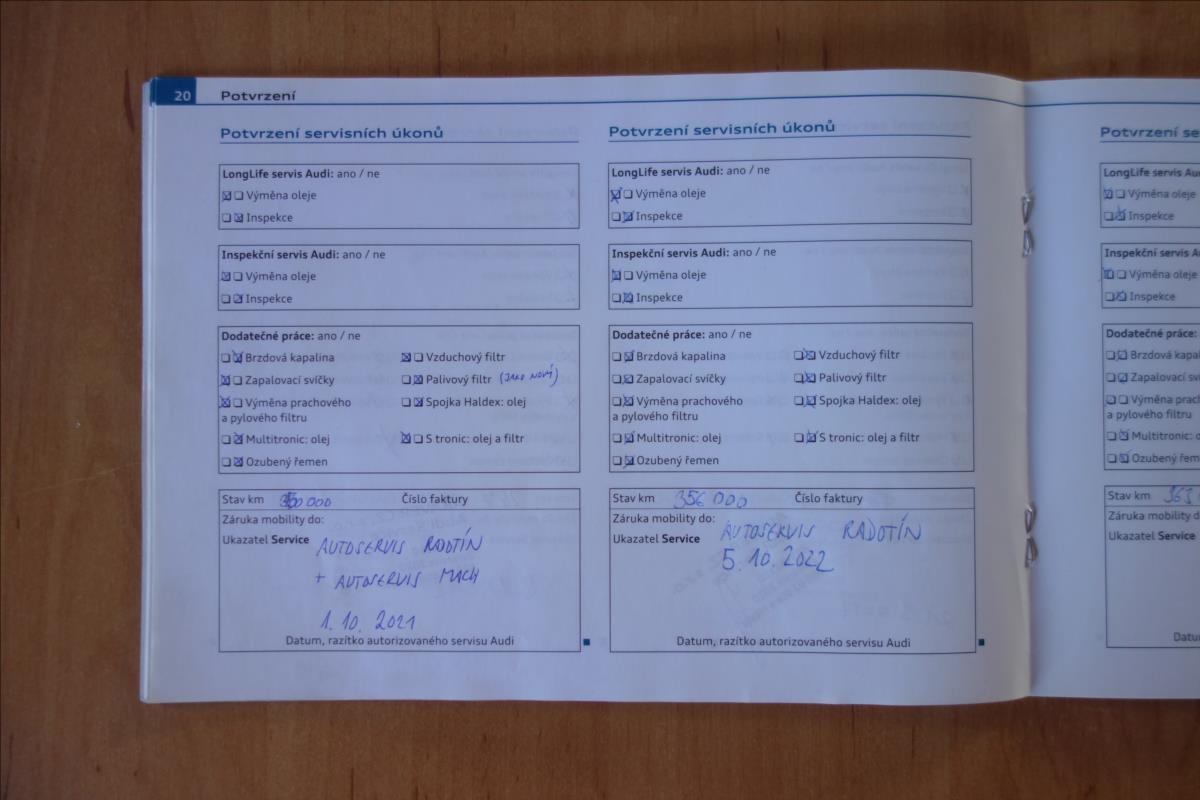 20 Potvrzení
Potvrzení servisních úkonů
LongLife servis Audi: ano / ne
Výměna oleje
Inspekce
Inspekční servis Audi: ano / ne
Výměna oleje
Inspekce
Dodatečné práce: ano / ne
Brzdová kapalina
Vzduchový filtr
Zapalovací svíčky
Palivový filtr (JAKO NOVÝ)
Výměna prachového
a pylového filtru
Spojka Haldex: olej
Multitronic: olej
S tronic: olej a filtr
Ozubený řemen
Stav km 350 000 Číslo faktury
Záruka mobility do:
Ukazatel Service
AUTOSERVIS RADOTÍN
+ AUTOSERVIS MACH
1. 10. 2021
Datum, razítko autorizovaného servisu Audi
Potvrzení servisních úkonů
LongLife servis Audi: ano / ne
Výměna oleje
Inspekce
Inspekční servis Audi: ano / ne
Výměna oleje
Inspekce
Dodatečné práce: ano / ne
Brzdová kapalina
Vzduchový filtr
Zapalovací svíčky
Palivový filtr
Výměna prachového
a pylového filtru
Spojka Haldex: olej
Multitronic: olej
S tronic: olej a filtr
Ozubený řemen
Stav km 356 000 Číslo faktury
Záruka mobility do:
Ukazatel Service
AUTOSERVIS RADOTÍN
5. 10. 2022
Datum, razítko autorizovaného servisu Audi
Potvrzení se
LongLife servis Au
Výměna oleje
Inspekce
Inspekční servis A
Výměna oleje
Inspekce
Dodatečné práce:
Brzdová kapal
Zapalovací sví
Výměna prach
a pylového filtru
Multitronic: o
Ozubený řem
Stav km 363
Záruka mobility d
Ukazatel Service
Datu